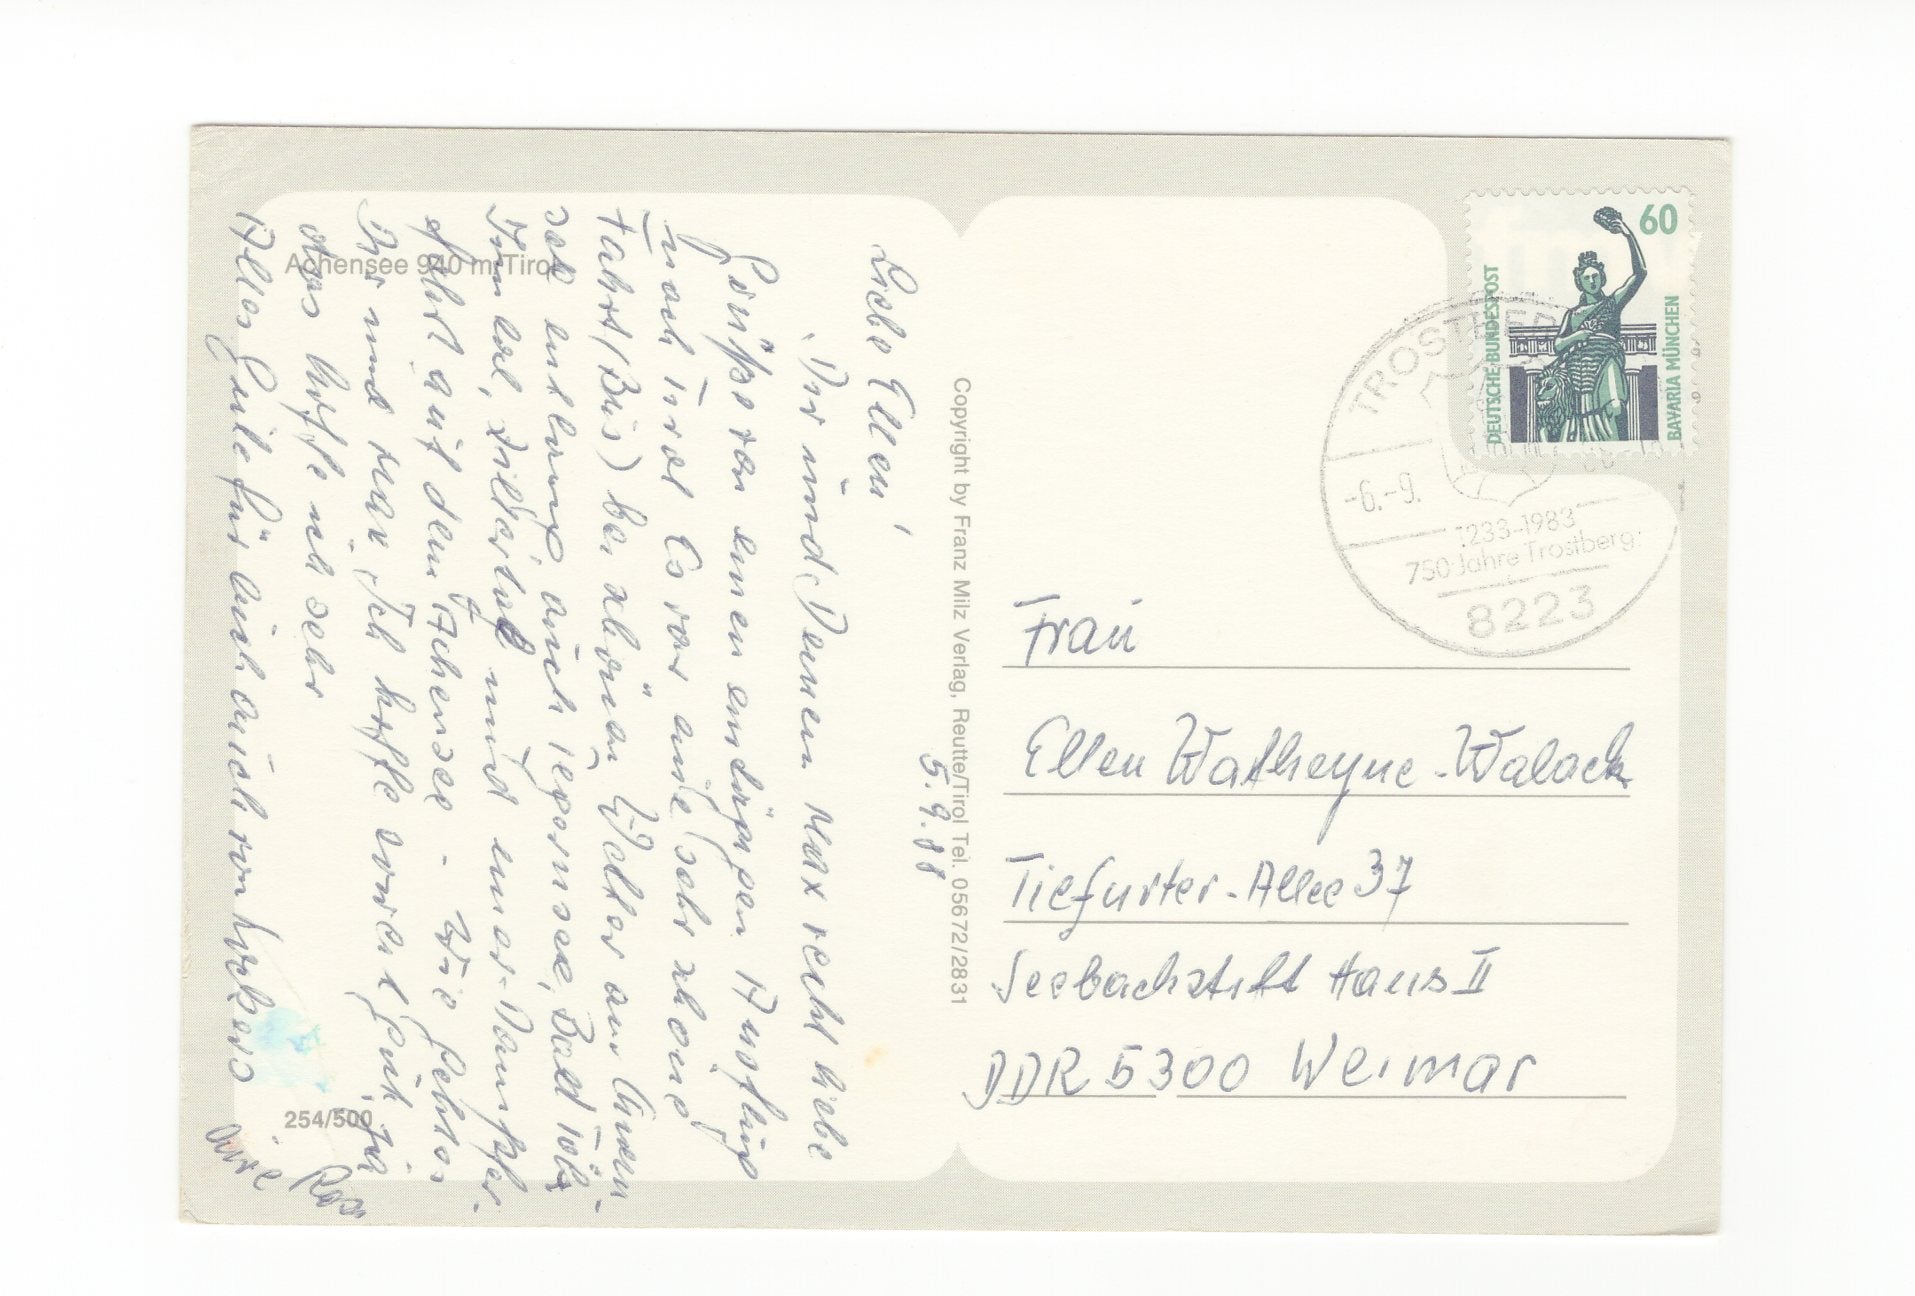 Achensee 940 m/Tirol
5.9.88
Liebe Ellen!
Dir und Deinem Max recht liebe
Grüße von einem eintägigen Ausflug
nach Tirol. Es war eine sehr schöne
Fahrt (Bus) bei schönem Wetter am Chiem-
see entlang auch Tegernsee, Bad Tölz,
Inntal, Zillertal und einer Dampfer-
fahrt auf dem Achensee - Wie gehts
Dir und Max, Ich hoffe soweit gut, ja
das hoffe ich sehr
Alles Gute für Euch auch von
Eure Rosa
254/500
Copyright by Franz Milz Verlag, Reutte/Tirol Tel. 05672/2831
60
DEUTSCHE BUNDESPOST
BAVARIA MÜNCHEN
TROSTBERG
-6.-9.
1233-1983
750 Jahre Trostberg
8223
Frau
Ellen Watheyne-Walack
Tiefurter-Allee 37
Seebachstift Haus II
DDR 5300 Weimar